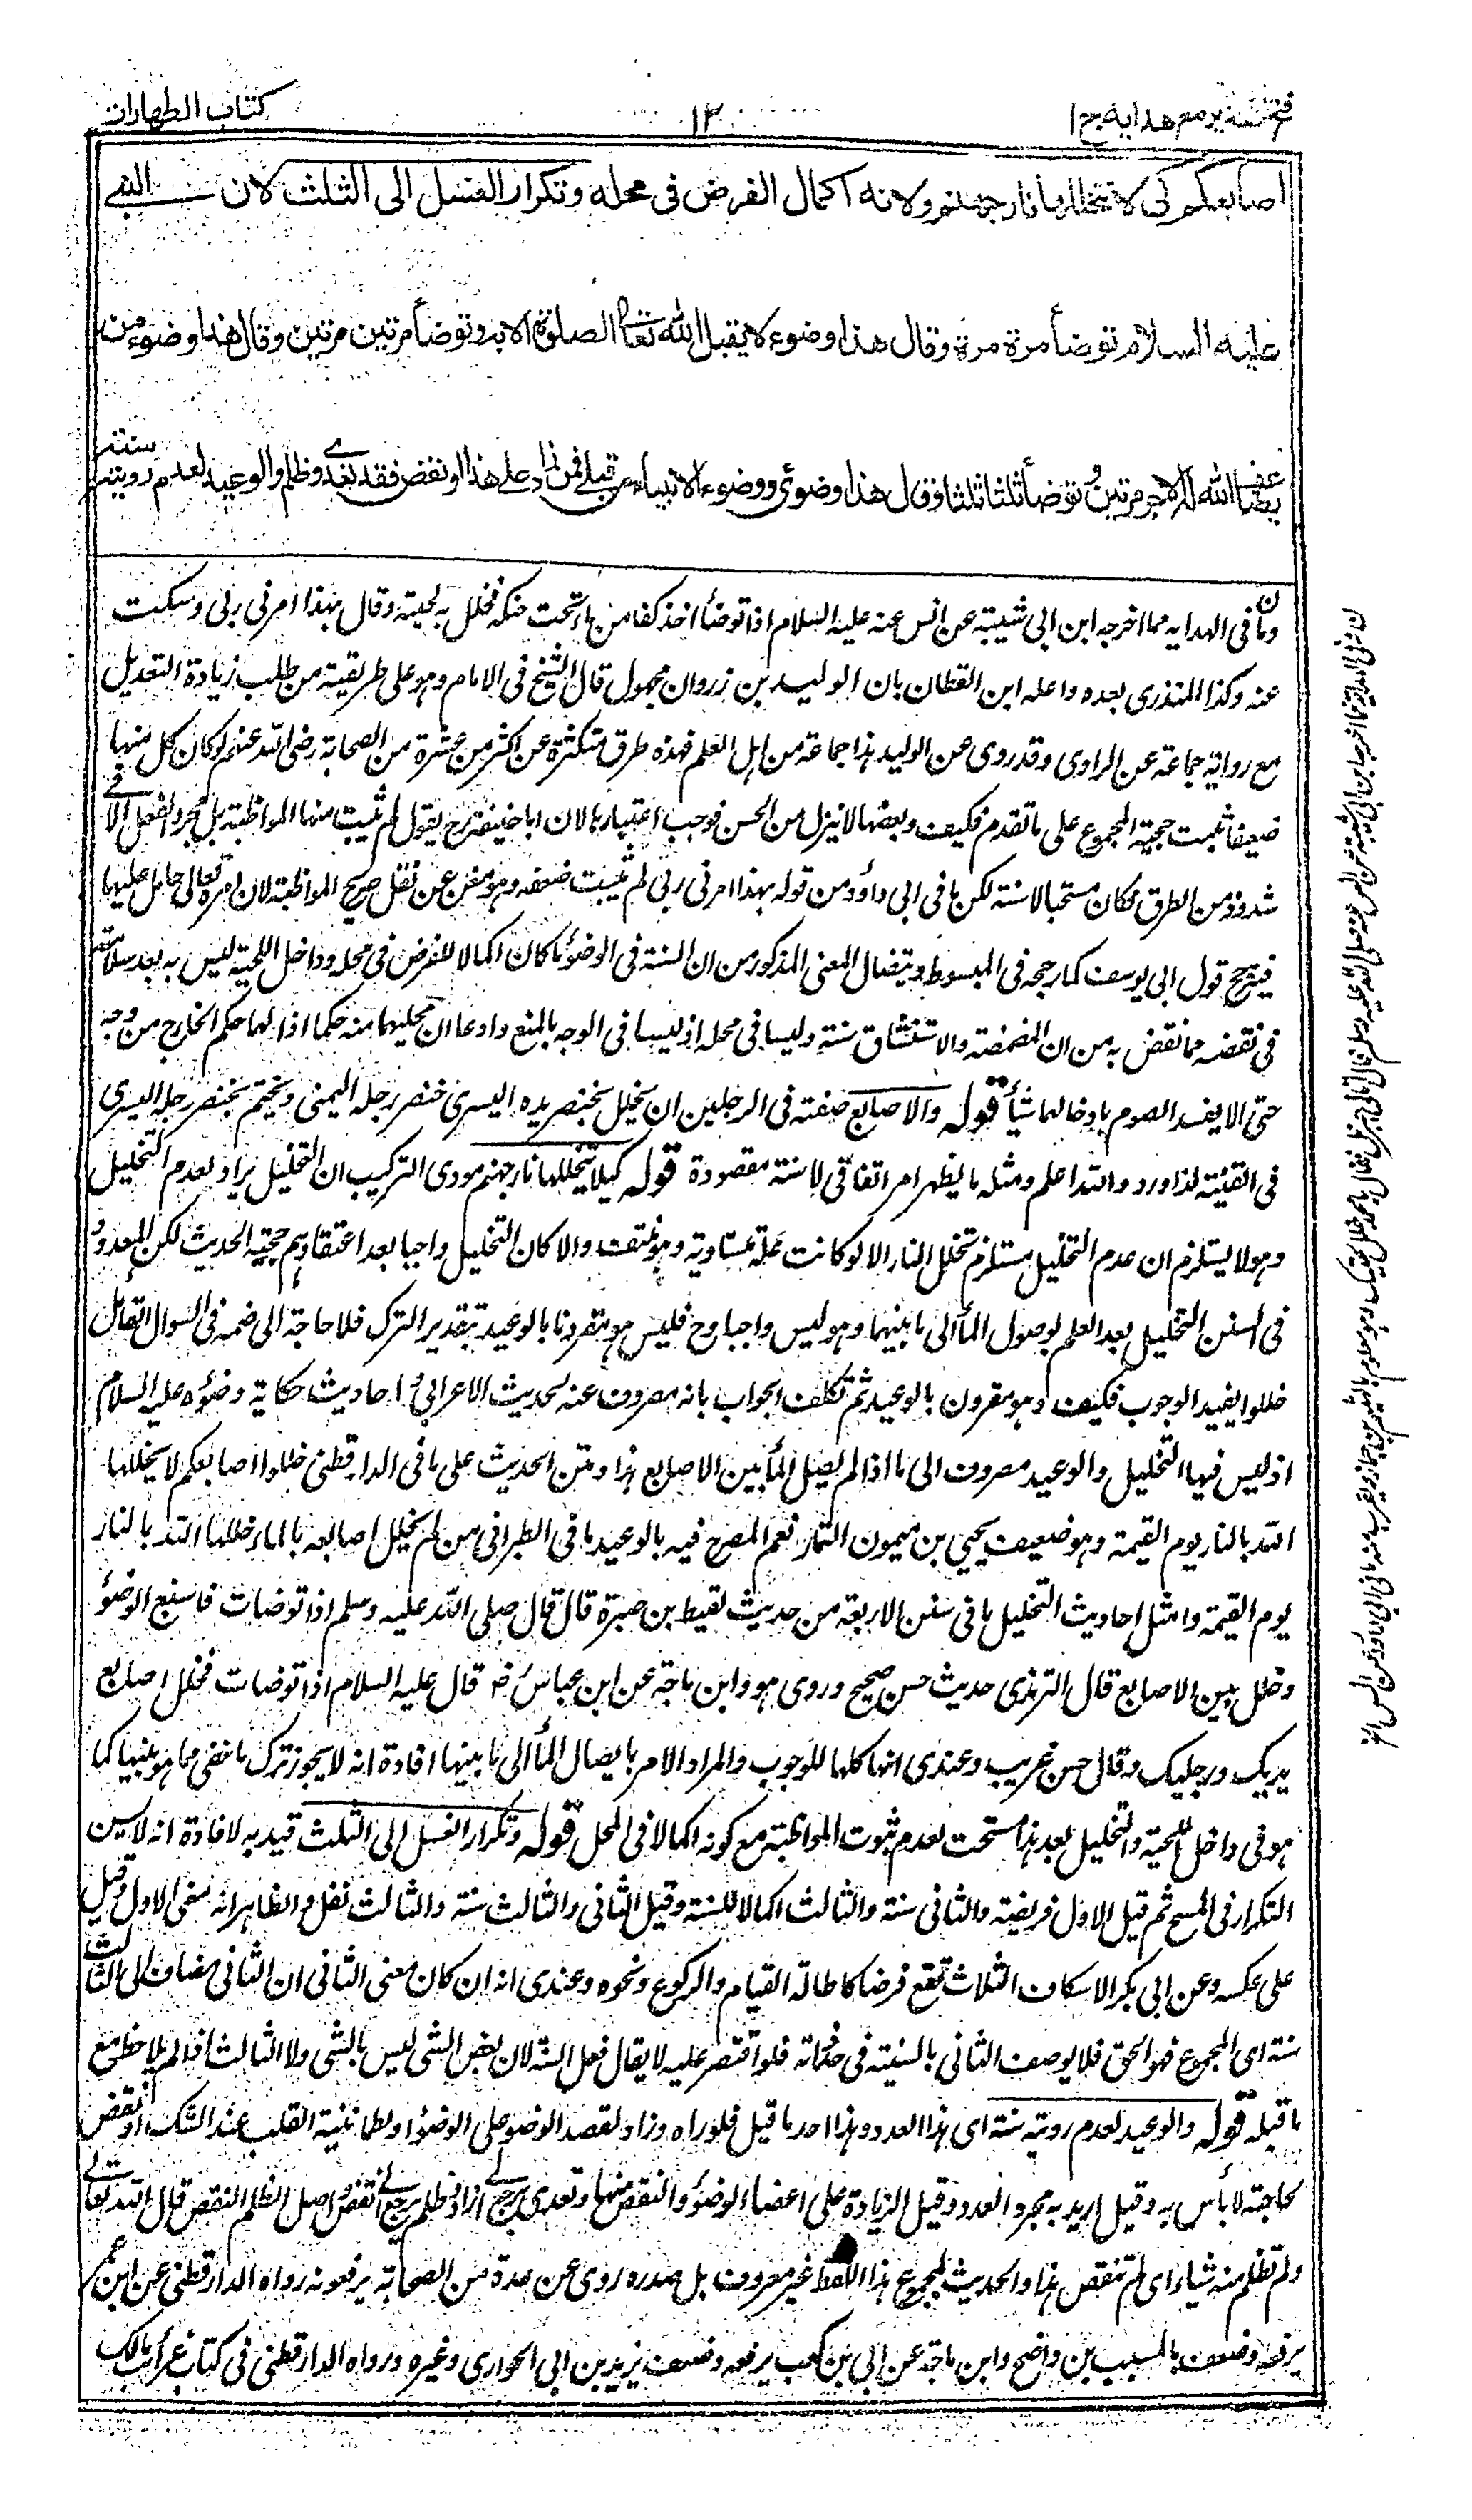 فتح القدير مع هدايه ج ا
١٣
كتاب الطهارات
اصابعكم كى لا تتخللها نار جهنم ولانه اكمال الفرض فى محله وتكرار الغسل الى الثلث لان النبي
عليه السلام توضأ مرة مرة وقال هذا وضوء لا يقبل الله تعالى الصلوة الا به وتوضأ مرتين مرتين وقال هذا وضوء من
يضاعف الله له الاجر مرتين وتوضأ ثلثا ثلثا وقال هذا وضوئى ووضوء الانبياء من قبلى فمن زاد على هذا او نقص فقد تعدى وظلم والوعيد لعدم رويته سنة
وما فى الهدايه مما اخرجه ابن ابى شيبة عن انس عنه عليه السلام اذا توضأ اخذ كفا من ماء تحت حنكه فخلل به لحيته وقال بهذا امرنى ربى وسكت
عنه وكذا المنذرى بعده واعله ابن القطان بان الوليد بن زروان مجهول قال الشيخ فى الامام وهو على طريقية من طلب زيادة التعديل
مع رواية جماعة عن الراوى وقد روى عن الوليد هذا جماعة من اهل العلم فهذه طرق متكثرة عن اكثر من عشرة من الصحابة رضى الله عنهم لو كان كل منها
ضعيفا ثبت حجية المجموع على ما تقدم فكيف وبعضها لا ينزل من الحسن فوجب اعتبارها الا ان ابا حنيفة رح يقول لم يثبت منها المواظبة بل مجرد الفعل الا فى
شذوذ من الطرق فكان مستحبا لا سنة لكن ما فى ابى داؤد من قوله بهذا امرنى ربى لم يثبت ضعفه وهو مغن عن نقل صريح المواظبة لان امره تعالى حامل عليها
فيترجح قول ابى يوسف كما رجحه فى المبسوط ويتضال المعنى المذكور من ان السنة فى الوضوء ما كان اكمالا للفرض فى محله وداخل اللحية ليس به بعد سلامته
فى نقضه مما نقض به من ان المضمضة والاستنشاق سنة وليسا فى محله اذ ليسا فى الوجه بالمنع وادعا ان محليهما منه حكما اذ لهما حكم الخارج من وجه
حتى لا يفسد الصوم بادخالهما شيأ قوله والاصابع صفته فى الرجلين ان يخلل بخنصر يده اليسرى خنصر رجله اليمنى ويختم بخنصر رجله اليسرى
فى القنية لذا ورد والله اعلم ومثله ما يظهر امر اتفاقى لا سنة مقصودة قوله كيلا تتخللها نار جهنم مودى التركيب ان التخليل يراد لعدم التخليل
وهو لا يستلزم ان عدم التخليل مستلزم تخلل النار الا لو كانت علة مساوية وهو منتف والا كان التخليل واجبا بعد اعتقادهم حجية الحديث لكن المعدود
فى السنن التخليل بعد العلم بوصول الماء الى ما بينهما وهو ليس واجبا وح فليس هو مقرونا بالوعيد بتقدير الترك فلا حاجة الى ضمه فى السوال القائل
خللوا يفيد الوجوب فكيف وهو مقرون بالوعيد ثم تكلف الجواب بانه مصروف عنه لحديث الاعرابى واحاديث حكاية وضوءه عليه السلام
اذ ليس فيها التخليل والوعيد مصروف الى ما اذا لم يصل الماء بين الاصابع هذا ومتن الحديث على ما فى الدارقطنى خللوا اصابعكم لا يخللها
الله بالنار يوم القيمة وهو ضعيف يحيى بن ميمون التمار نعم المصرح فيه بالوعيد ما فى الطبرانى من لم يخلل اصابعه بالماء خللها الله بالنار
يوم القيمة وامثل احاديث التخليل ما فى سنن الاربعة من حديث لقيط بن صبرة قال قال صلى الله عليه وسلم اذا توضات فاسبغ الوضوء
وخلل بين الاصابع قال الترمذى حديث حسن صحيح وروى هو وابن ماجة عن ابن عباس رض قال عليه السلام اذا توضات فخلل اصابع
يديك ورجليك وقال حسن غريب وعندى انها كلها للوجوب والمراد الامر بايصال الماء الى ما بينها افادة انه لا يجوز ترك ما خفى مما هو بينها كما
هو فى داخل اللحية والتخليل بعد هذا مستحب لعدم ثبوت المواظبة مع كونه اكمالا فى المحل قوله وتكرار الغسل الى الثلث قيد به لافادة انه لا يسن
التكرار فى المسح ثم قيل الاول فريضة والثانى سنة والثالث اكمالا للسنة وقيل الثانى والثالث سنة والثالث نفل والظاهر انه معنى الاول وقيل
على عكسه وعن ابى بكر الاسكاف الثلاث تقع فرضا كاطالة القيام والركوع ونحوه وعندى انه ان كان معنى الثانى ان الثانى مضاف الى الثالث
سنة اى المجموع فهو الحق فلا يوصف الثانى بالسنية فى حد ذاته فلو اقتصر عليه لا يقال فعل السنة لان بعض الشى ليس بالشى ولا الثالث اذا لم يلاحظ مع
ما قبله قوله والوعيد لعدم رويته سنة اى هذا العدد وهذا احد ما قيل فلو راه وزاد لقصد الوضوء على الوضوء او لطمانينة القلب عند الشك او نقص
لحاجة لا بأس به وقيل اريد به مجرد العدد وقيل الزيادة على اعضاء الوضوء والنقص منها وتعدى يرجع الى زاد وظلم يرجع الى نقص واصل الظلم النقص قال الله تعالى
ولم تظلم منه شيأ اى لم تنقص هذا والحديث بمجموع هذا اللفظ غير معروف بل صدره روى عن عدة من الصحابة يرفعونه رواه الدارقطنى عن ابن عمر
يرفعه وضعف بالمسيب بن واضح وابن ماجة عن ابى بن كعب يرفعه وضعف يزيد بن ابى الحوارى وغيره ورواه الدارقطنى فى كتاب غرائب مالك